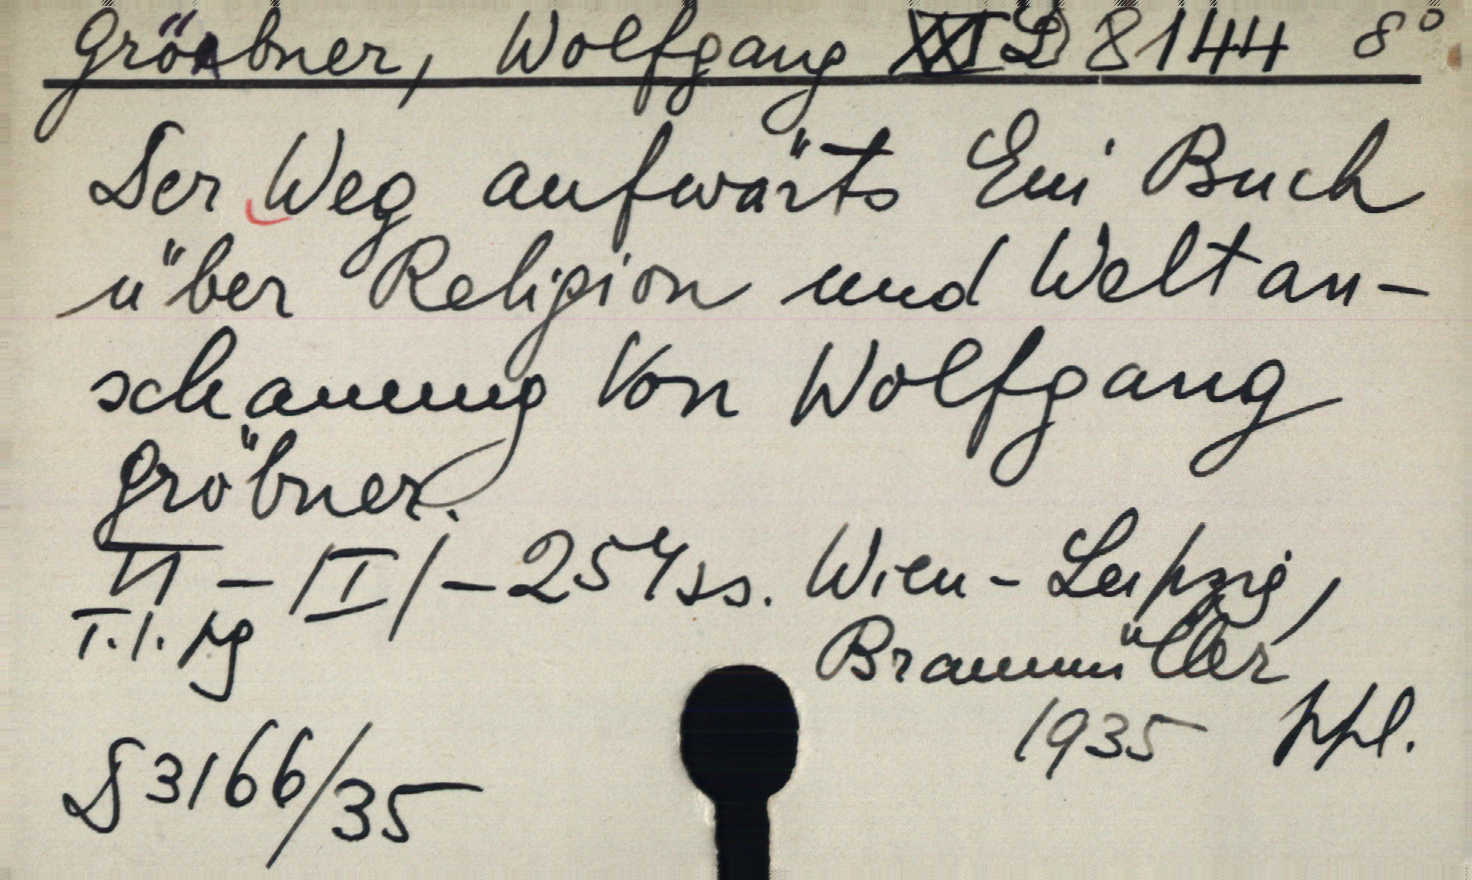 Gröbner, Wolfgang XXI D 8144 8°
Der Weg aufwärts Ein Buch
über Religion und Weltan-
schauung Von Wolfgang
Gröbner.
VI - /I/ - 254 ss. Wien - Leipzig,
T.l. jg Braumüller
1935 ppl.
S 3166/35